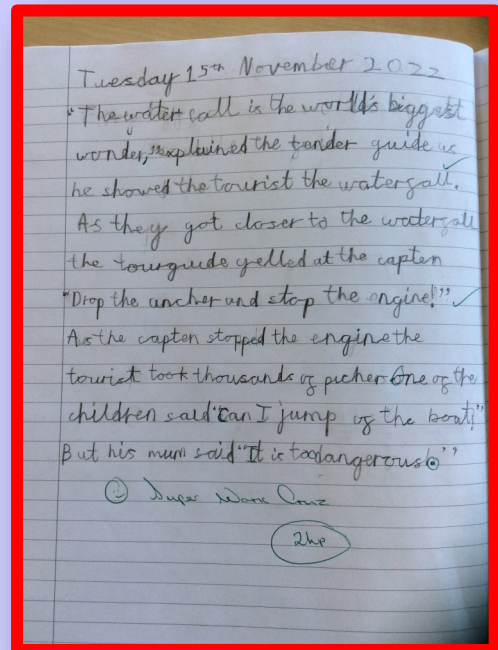 Tuesday 15th November 2022
"The waterfall is the world's biggest
wonder," explained the tender guide as
he showed the tourist the waterfall.
As they got closer to the waterfall
the tourguide yelled at the capten
"Drop the ancher and stop the engine!"
As the capten stopped the engine the
tourist took thousands of picher One of the
children said "Can I jump of the boat!"
But his mum said "It is too dangerous."
Super Work Cruz
2hp